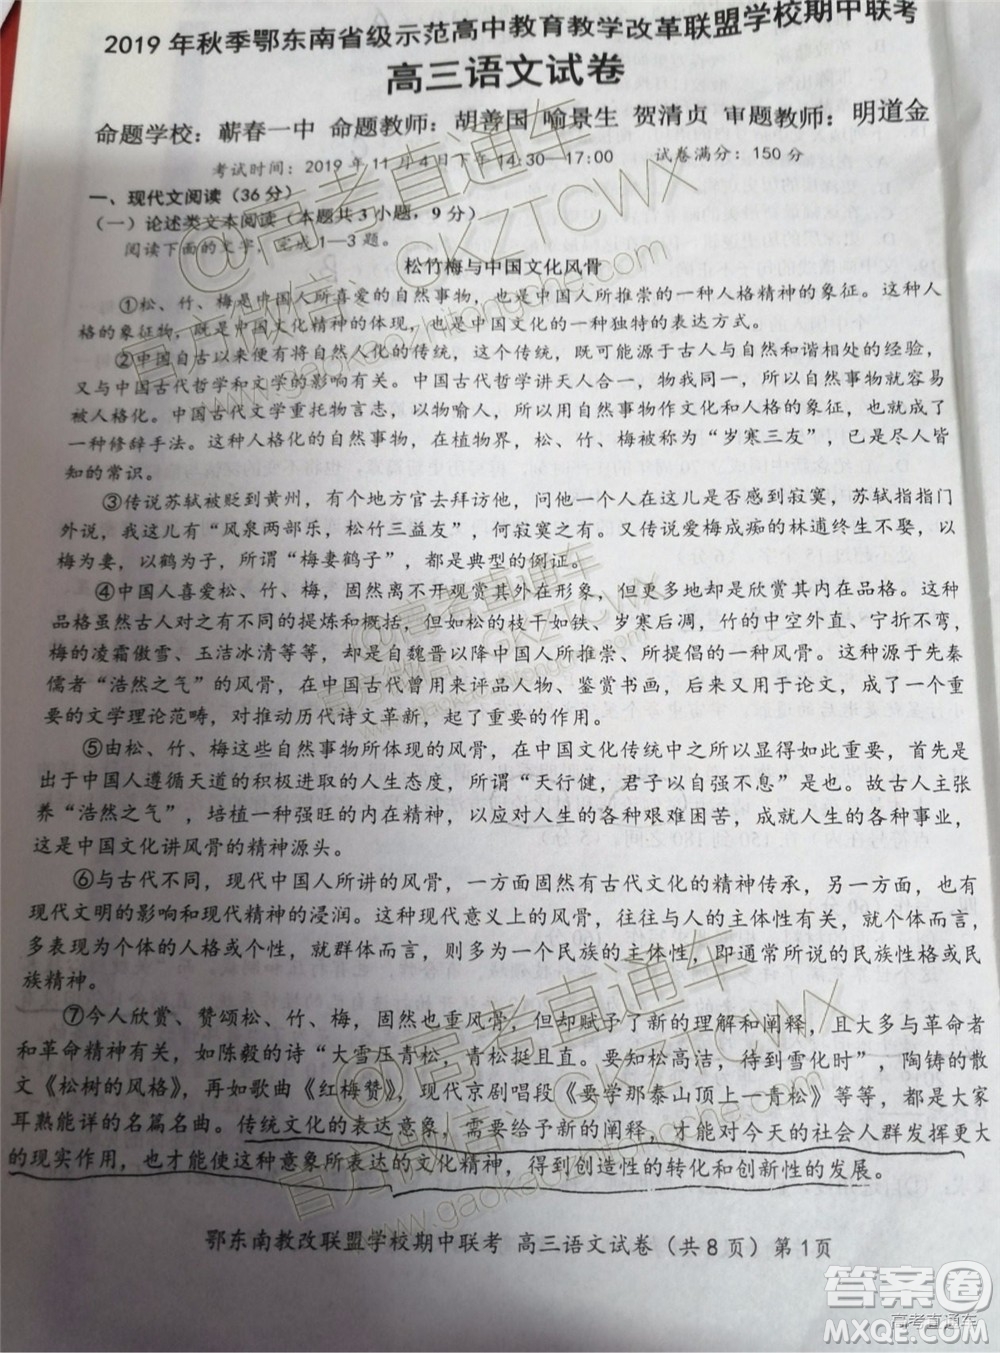 2019年秋季鄂东南省级示范高中教育教学改革联盟学校期中联考
高三语文试卷
命题学校：蕲春一中 命题教师：胡善国 喻景生 贺清贞 审题教师：明道金
考试时间：2019年11月4日下午14:30—17:00 试卷满分：150分
一、现代文阅读（36分）
（一）论述类文本阅读（本题共3小题，9分）
阅读下面的文字，完成1—3题。
松竹梅与中国文化风骨
①松、竹、梅是中国人所喜爱的自然事物，也是中国人所推崇的一种人格精神的象征。这种人
格的象征物，既是中国文化精神的体现，也是中国文化的一种独特的表达方式。
②中国自古以来便有将自然人化的传统，这个传统，既可能源于古人与自然和谐相处的经验，
又与中国古代哲学和文学的影响有关。中国古代哲学讲天人合一，物我同一，所以自然事物就容易
被人格化。中国古代文学重托物言志，以物喻人，所以用自然事物作文化和人格的象征，也就成了
一种修辞手法。这种人格化的自然事物，在植物界，松、竹、梅被称为“岁寒三友”，已是尽人皆
知的常识。
③传说苏轼被贬到黄州，有个地方官去拜访他，问他一个人在这儿是否感到寂寞，苏轼指指门
外说，我这儿有“风泉两部乐，松竹三益友”，何寂寞之有。又传说爱梅成痴的林逋终生不娶，以
梅为妻，以鹤为子，所谓“梅妻鹤子”，都是典型的例证。
④中国人喜爱松、竹、梅，固然离不开观赏其外在形象，但更多地却是欣赏其内在品格。这些
品格虽然古人对之有不同的提炼和概括，但如松的枝干如铁、岁寒后凋，竹的中空外直、宁折不弯，
梅的凌霜傲雪、玉洁冰清等等，却是自魏晋以降中国人所推崇、所提倡的一种风骨。这种源于先秦
儒者“浩然之气”的风骨，在中国古代曾用来评品人物、鉴赏书画，后来又用于论文，成了一个重
要的文学理论范畴，对推动历代诗文革新，起了重要的作用。
⑤由松、竹、梅这些自然事物所体现的风骨，在中国文化传统中之所以显得如此重要，首先是
出于中国人遵循天道的积极进取的人生态度，所谓“天行健，君子以自强不息”是也。故古人主张
养“浩然之气”，培植一种强旺的内在精神，以应对人生的各种艰难困苦，成就人生的各种事业，
这是中国文化讲风骨的精神源头。
⑥与古代不同，现代中国人所讲的风骨，一方面固然有古代文化的精神传承，另一方面，也有
现代文明的影响和现代精神的浸润。这种现代意义上的风骨，往往与人的主体性有关，就个体而言，
多表现为个体的人格或个性，就群体而言，则多为一个民族的主体性，即通常所说的民族性格或民
族精神。
⑦今人欣赏、赞颂松、竹、梅，固然也重风骨，但却赋予了新的理解和阐释，且大多与革命者
和革命精神有关，如陈毅的诗“大雪压青松，青松挺且直。要知松高洁，待到雪化时”，陶铸的散
文《松树的风格》，再如歌曲《红梅赞》，现代京剧唱段《要学那泰山顶上一青松》等等，都是大家
耳熟能详的名篇名曲。传统文化的表达意象，需要给予新的阐释，才能对今天的社会人群发挥更大
的现实作用，也才能使这种意象所表达的文化精神，得到创造性的转化和创新性的发展。
鄂东南教改联盟学校期中联考 高三语文试卷（共8页）第1页
@高考直通车
官方微信：GKZTCWX
www.gaokaozhitongche.com
答案圈
高考直通车
MXQE.COM